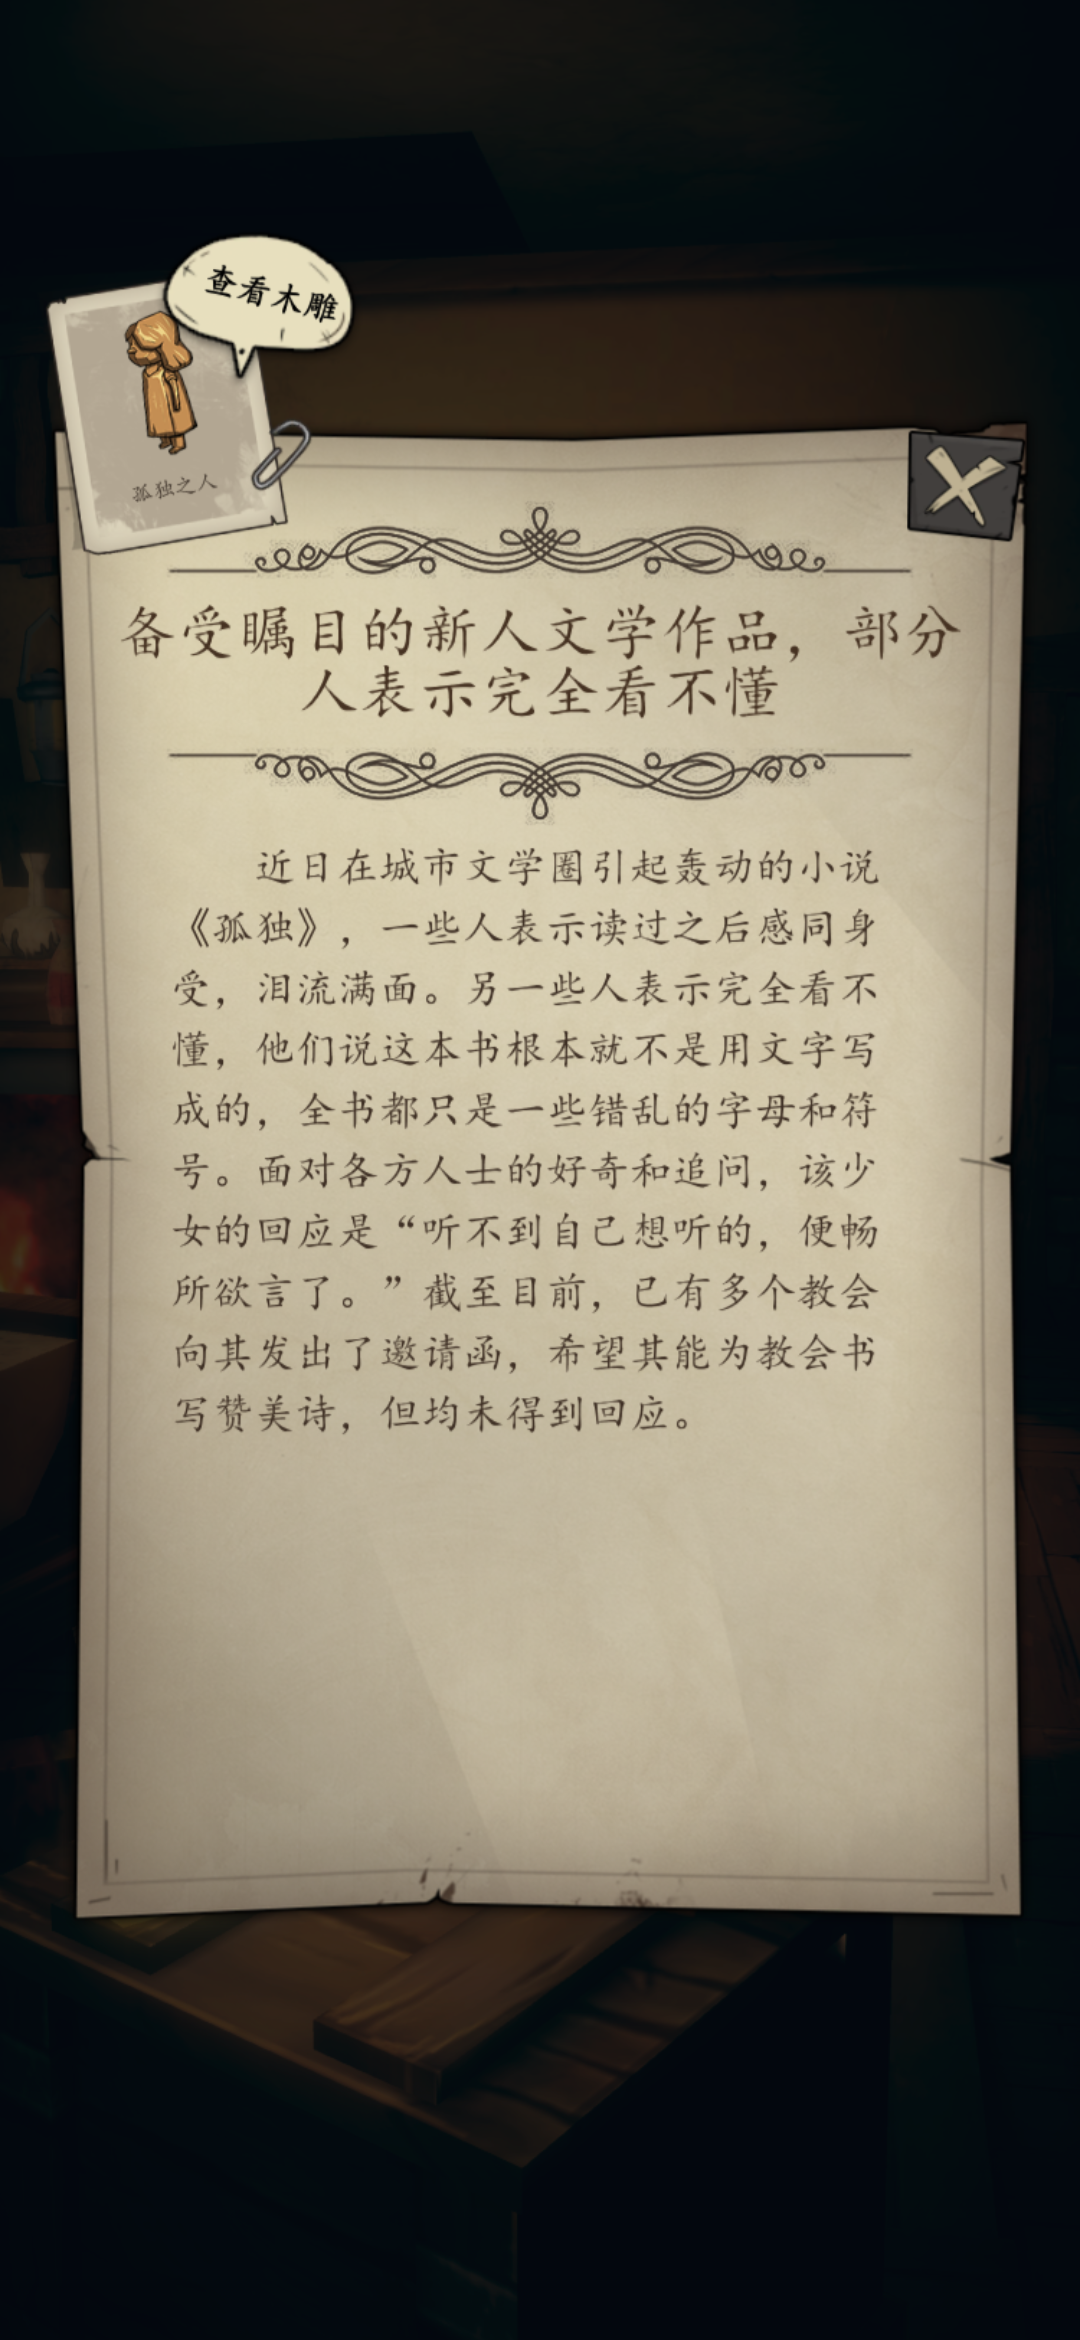 查看木雕
孤独之人
备受瞩目的新人文学作品，部分
人表示完全看不懂
近日在城市文学圈引起轰动的小说
《孤独》，一些人表示读过之后感同身
受，泪流满面。另一些人表示完全看不
懂，他们说这本书根本就不是用文字写
成的，全书都只是一些错乱的字母和符
号。面对各方人士的好奇和追问，该少
女的回应是“听不到自己想听的，便畅
所欲言了。”截至目前，已有多个教会
向其发出了邀请函，希望其能为教会书
写赞美诗，但均未得到回应。